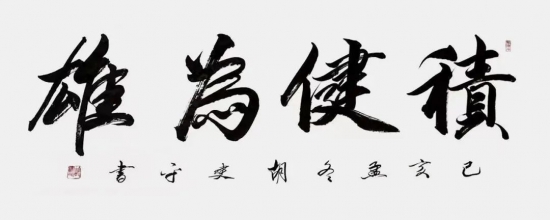 積健為雄
己亥孟冬胡吏平書